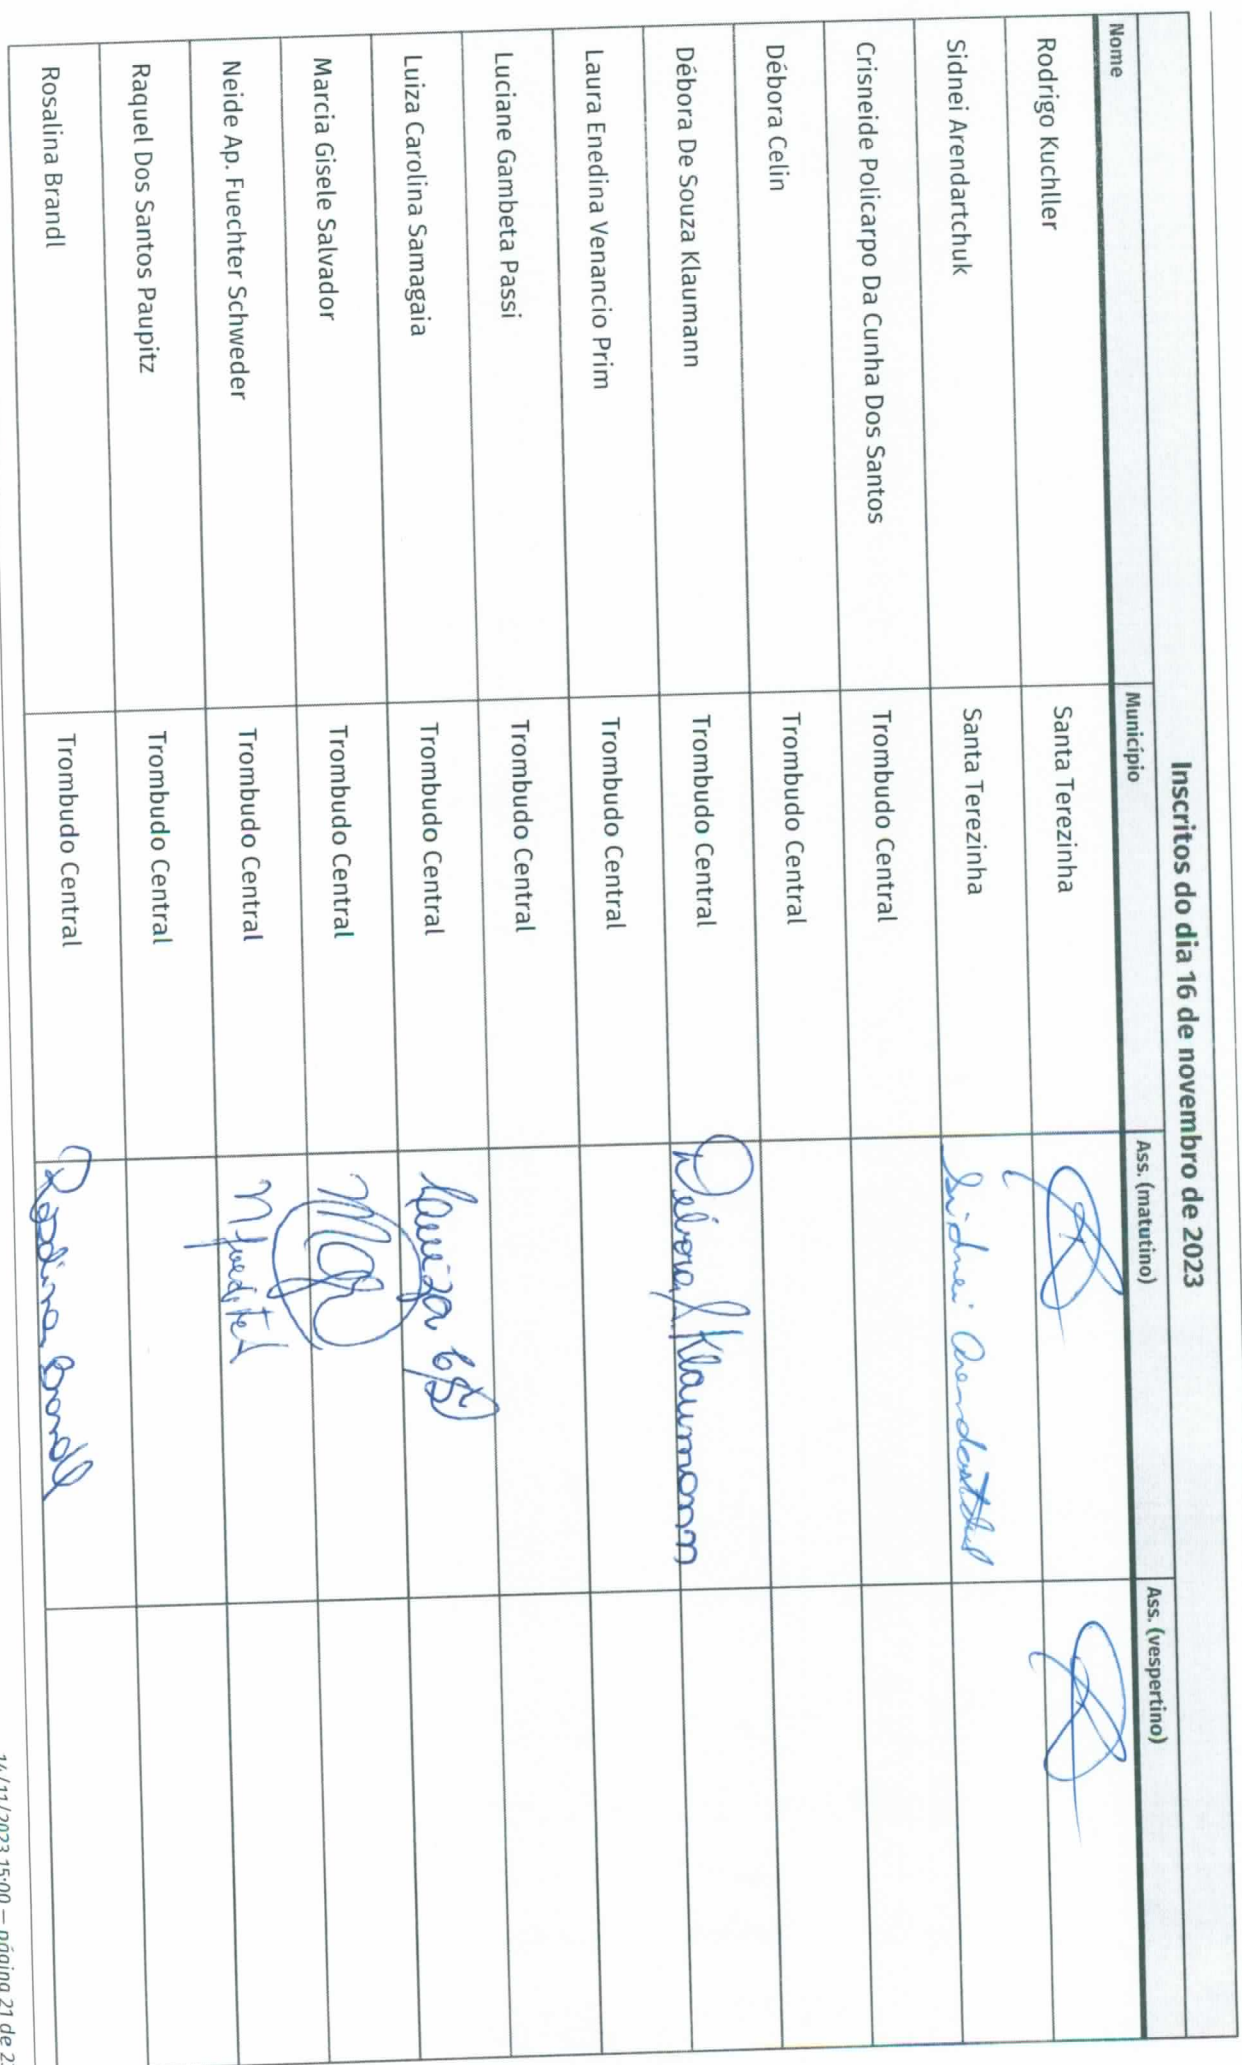 Inscritos do dia 16 de novembro de 2023
Nome Município Ass. (matutino) Ass. (vespertino)
Rodrigo Kuchller Santa Terezinha
Sidnei Arendartchuk Santa Terezinha Sidnei Arendartchuk
Crisneide Policarpo Da Cunha Dos Santos Trombudo Central
Débora Celin Trombudo Central
Débora De Souza Klaumann Trombudo Central Débora S. Klaumann
Laura Enedina Venancio Prim Trombudo Central
Luciane Gambeta Passi Trombudo Central
Luiza Carolina Samagaia Trombudo Central Luiza
Marcia Gisele Salvador Trombudo Central
Neide Ap. Fuechter Schweder Trombudo Central
Raquel Dos Santos Paupitz Trombudo Central
Rosalina Brandl Trombudo Central Rosalina Brandl
14/11/2023 15:00 – página 21 de 2